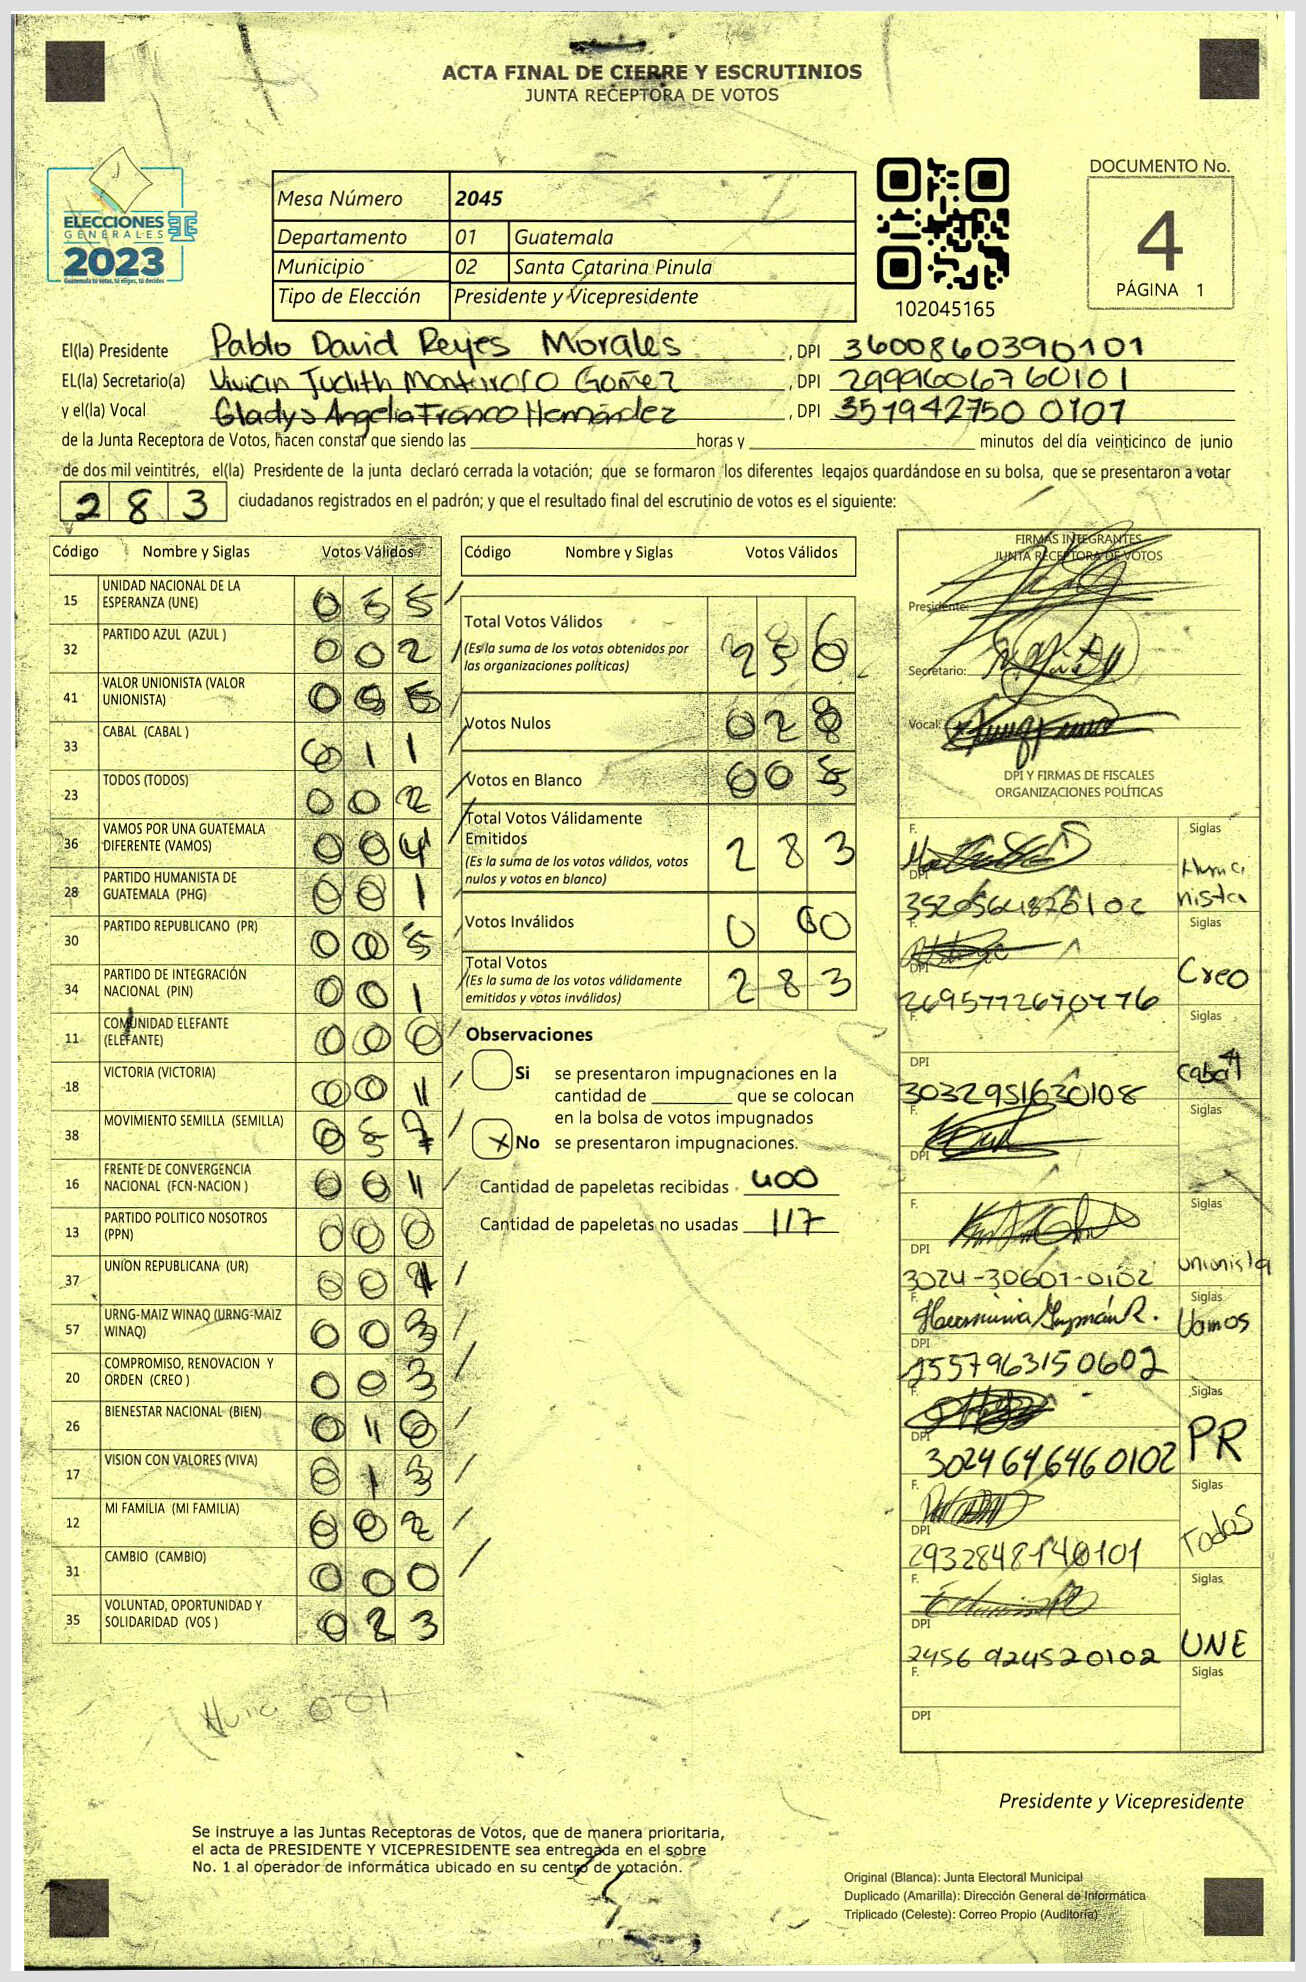 ACTA FINAL DE CIERRE Y ESCRUTINIOS
JUNTA RECEPTORA DE VOTOS
ELECCIONES
GENERALES
2023
Guatemala tú votas, tú eliges, tú decides
Mesa Número 2045
Departamento 01 Guatemala
Municipio 02 Santa Catarina Pinula
Tipo de Elección Presidente y Vicepresidente
102045165
DOCUMENTO No.
4
PÁGINA 1
El(la) Presidente Pablo David Reyes Morales, DPI 3600860390101
EL(la) Secretario(a) Vivian Judith Monterroso Gomez, DPI 2999606760101
y el(la) Vocal Gladys Angelia Franco Hernández, DPI 3519427500101
de la Junta Receptora de Votos, hacen constar que siendo las horas y minutos del día veinticinco de junio
de dos mil veintitrés, el(la) Presidente de la junta declaró cerrada la votación; que se formaron los diferentes legajos quardándose en su bolsa, que se presentaron a votar
283 ciudadanos registrados en el padrón; y que el resultado final del escrutinio de votos es el siguiente:
Código Nombre y Siglas Votos Válidos
15 UNIDAD NACIONAL DE LA ESPERANZA (UNE) 055
32 PARTIDO AZUL (AZUL ) 002
41 VALOR UNIONISTA (VALOR UNIONISTA)
33 CABAL (CABAL ) 011
23 TODOS (TODOS) 002
36 VAMOS POR UNA GUATEMALA DIFERENTE (VAMOS)
28 PARTIDO HUMANISTA DE GUATEMALA (PHG) 001
30 PARTIDO REPUBLICANO (PR) 005
34 PARTIDO DE INTEGRACIÓN NACIONAL (PIN) 001
11 COMUNIDAD ELEFANTE (ELEFANTE) 000
18 VICTORIA (VICTORIA)
38 MOVIMIENTO SEMILLA (SEMILLA) 057
16 FRENTE DE CONVERGENCIA NACIONAL (FCN-NACION )
13 PARTIDO POLITICO NOSOTROS (PPN) 000
37 UNION REPUBLICANA (UR)
57 URNG-MAIZ WINAQ (URNG-MAIZ WINAQ) 003
20 COMPROMISO, RENOVACION Y ORDEN (CREO ) 003
26 BIENESTAR NACIONAL (BIEN) 010
17 VISION CON VALORES (VIVA) 013
12 MI FAMILIA (MI FAMILIA) 002
31 CAMBIO (CAMBIO) 000
35 VOLUNTAD, OPORTUNIDAD Y SOLIDARIDAD (VOS ) 023
001
Código Nombre y Siglas Votos Válidos
Total Votos Válidos
(Es la suma de los votos obtenidos por las organizaciones políticas)
Votos Nulos 028
Votos en Blanco 005
Total Votos Válidamente Emitidos 283
(Es la suma de los votos válidos, votos nulos y votos en blanco)
Votos Inválidos 000
Total Votos 283
(Es la suma de los votos válidamente emitidos y votos inválidos)
Observaciones
Si se presentaron impugnaciones en la
cantidad de que se colocan
en la bolsa de votos impugnados
X No se presentaron impugnaciones.
Cantidad de papeletas recibidas 400
Cantidad de papeletas no usadas 117
FIRMAS INTEGRANTES
JUNTA RECEPTORA DE VOTOS
Presidente:
Secretario:
Vocal:
DPI Y FIRMAS DE FISCALES
ORGANIZACIONES POLÍTICAS
F. Siglas
DPI Humanista
F. Siglas
DPI 2695772670776 Creo
F. Siglas
DPI 3032951630108 Cabal
F. Siglas
DPI
F. Siglas
DPI 3024-30601-0102 unionista
F. Herminia Guzmán R. Siglas
DPI 1557963150602 Vamos
F. Siglas
DPI 3024646460102 PR
F. Siglas
DPI 2932848140101 Todos
F. Siglas
DPI 2456924520102 UNE
F. Siglas
DPI
Presidente y Vicepresidente
Se instruye a las Juntas Receptoras de Votos, que de manera prioritaria,
el acta de PRESIDENTE Y VICEPRESIDENTE sea entregada en el sobre
No. 1 al operador de informática ubicado en su centro de votación.
Original (Blanca): Junta Electoral Municipal
Duplicado (Amarilla): Dirección General de Informática
Triplicado (Celeste): Correo Propio (Auditoría)